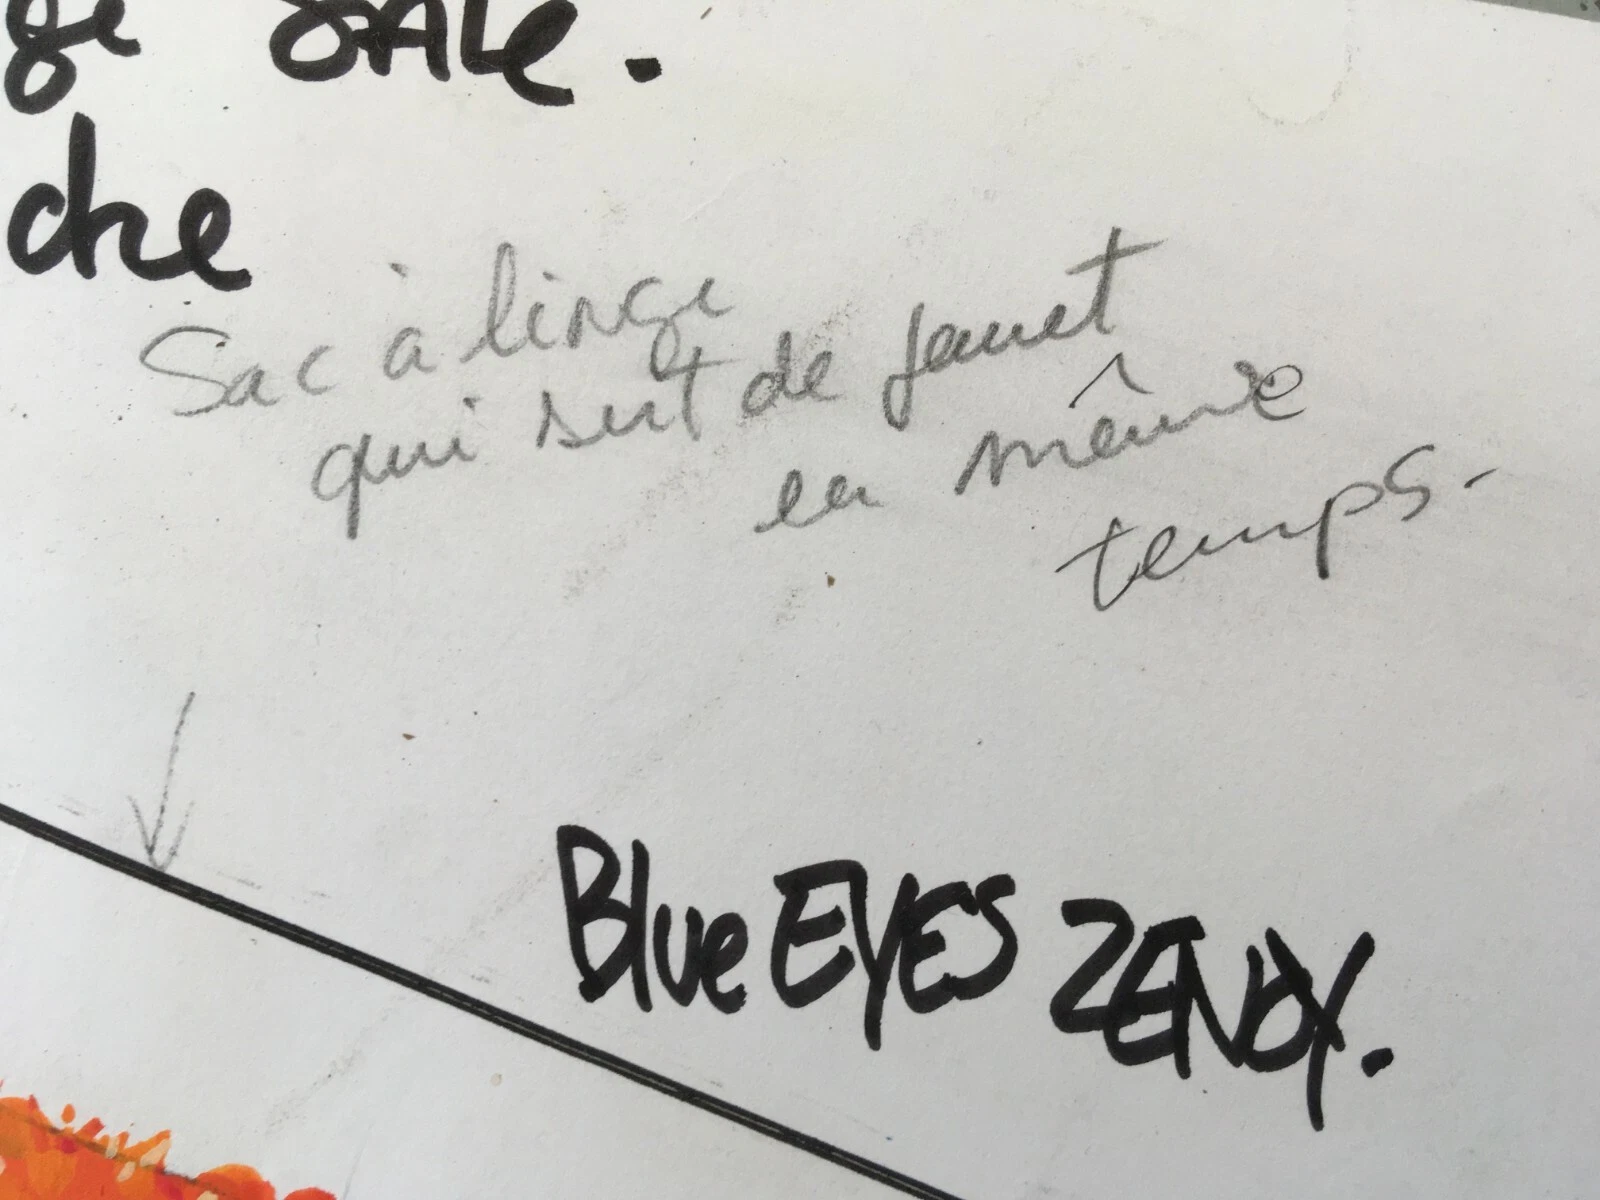 ge SALe.
dre
Sac à linge
qui sert de jouet
en même
temps.
Blue EYES ZENDY.